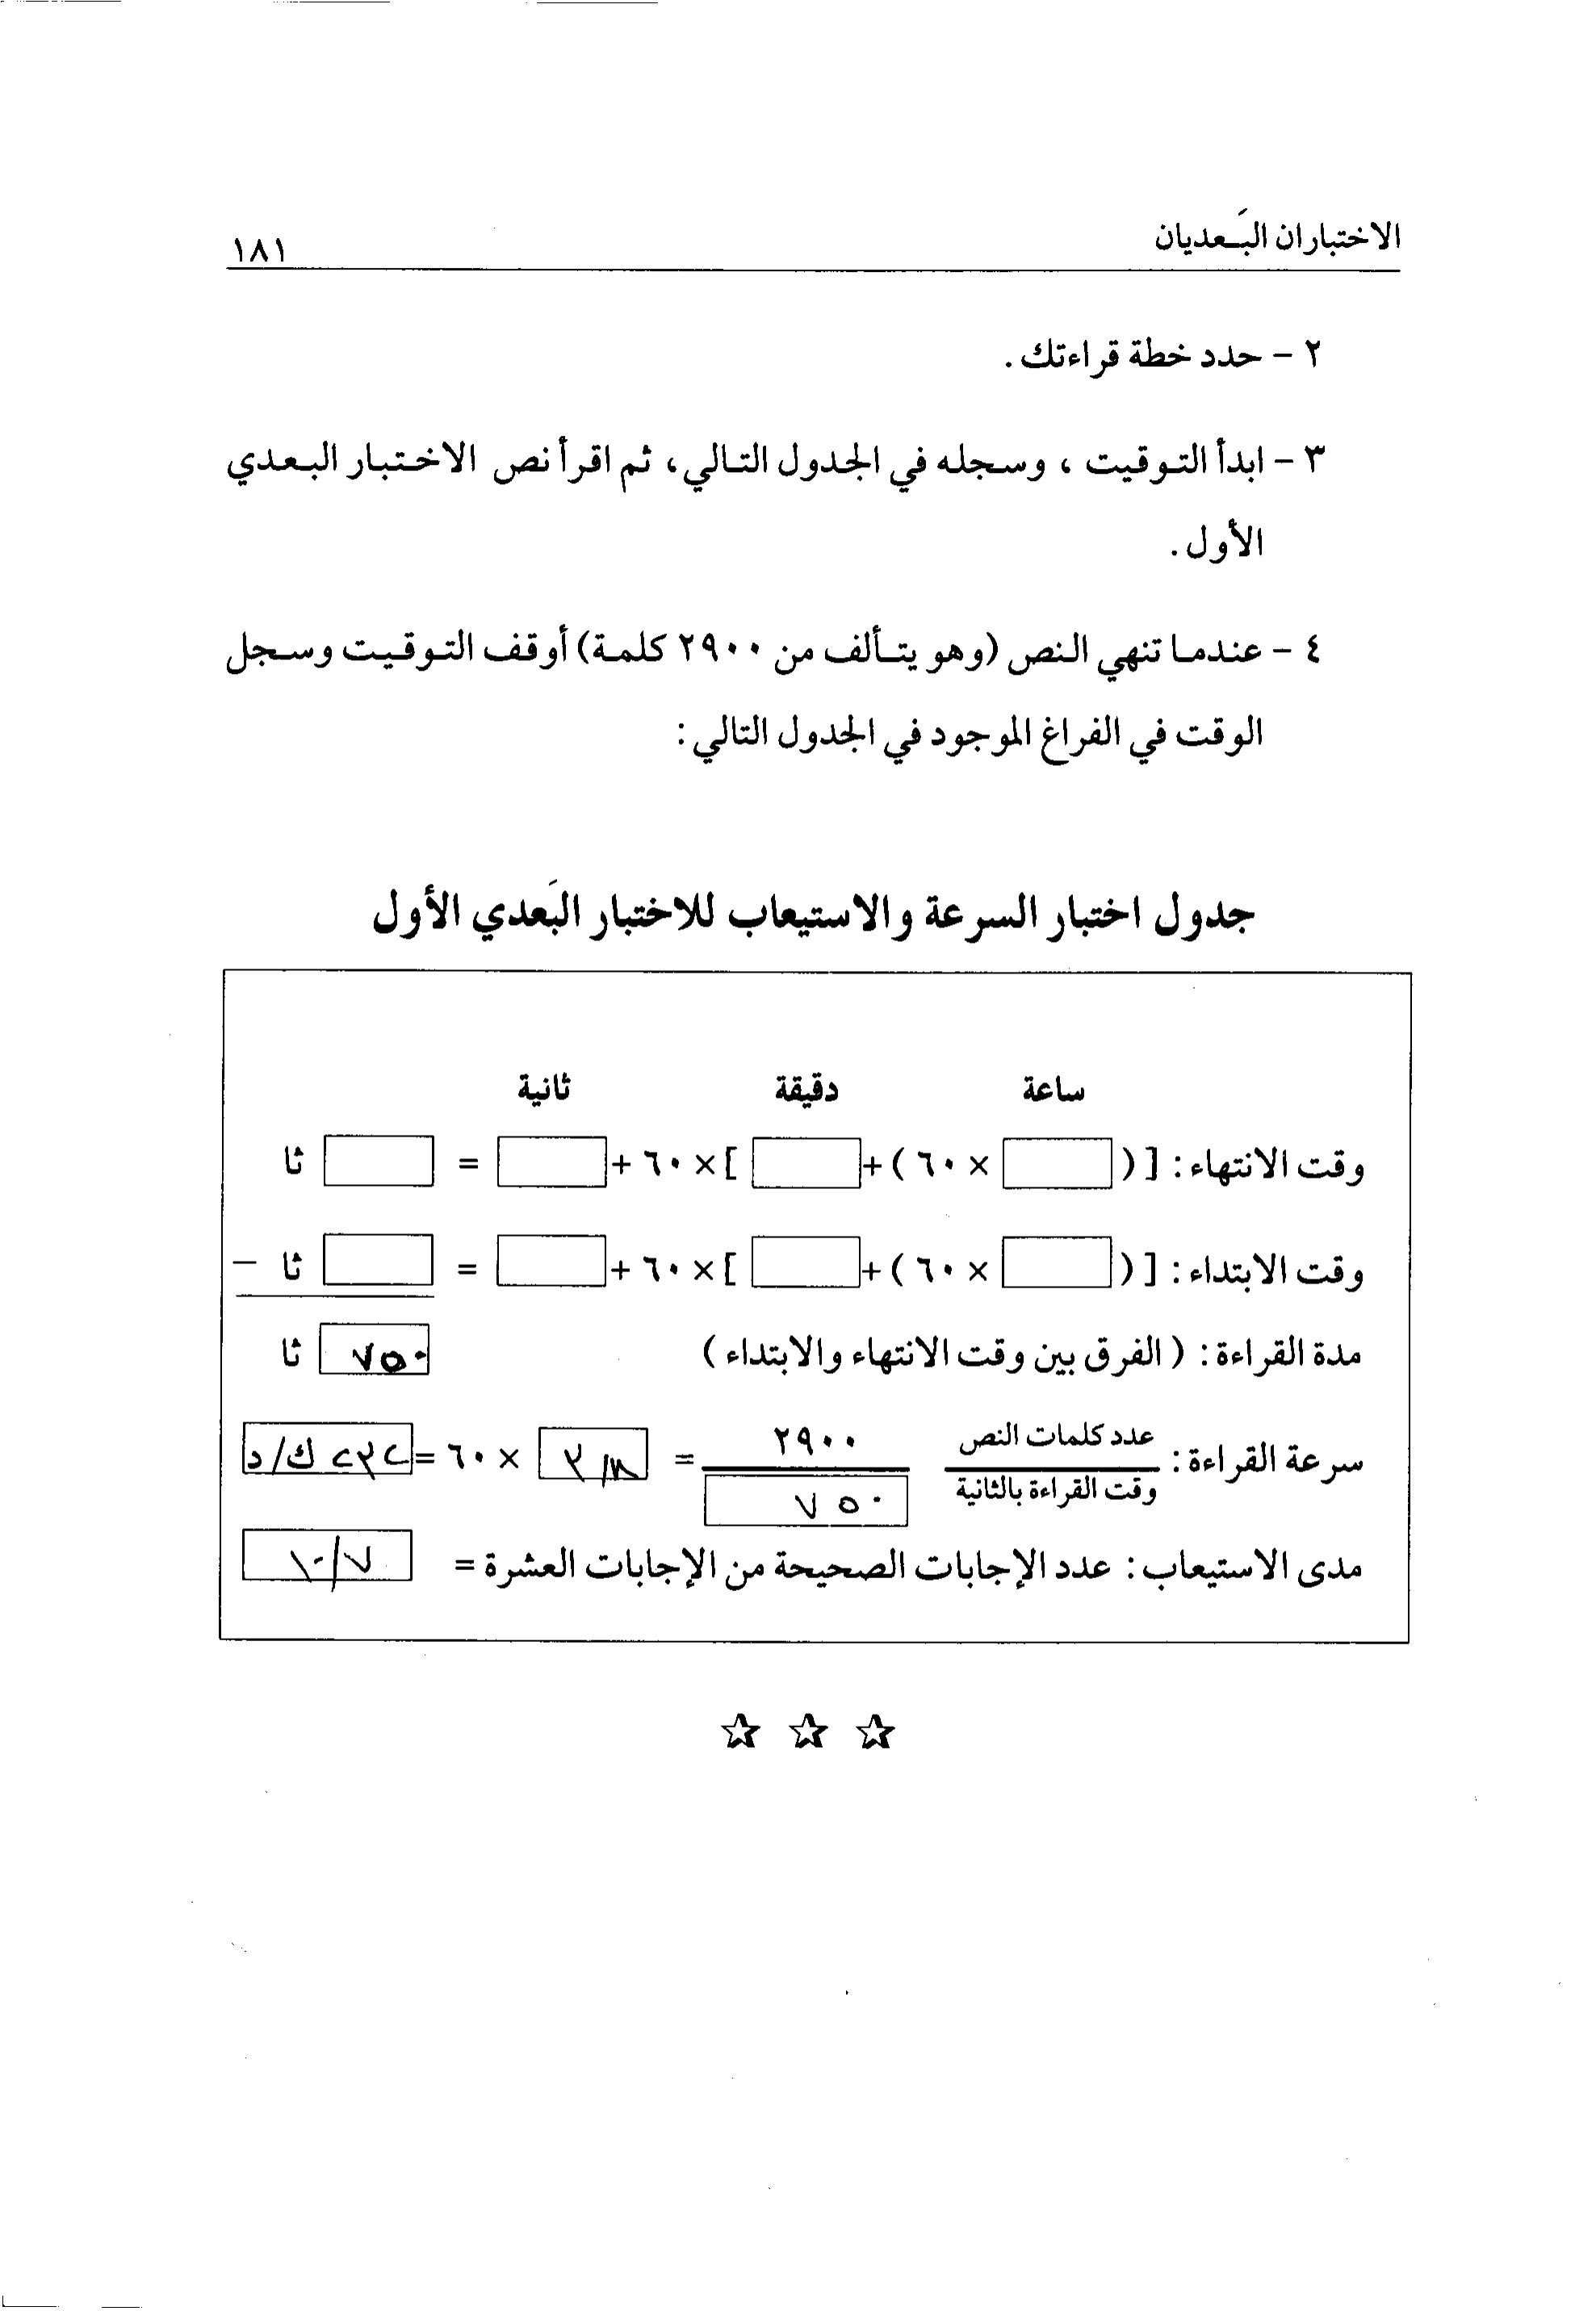 الاختباران البَعديان
١٨١
٢ - حدد خطة قراءتك .
٣ - ابدأ التوقيت ، وسجله في الجدول التالي ، ثم اقرأ نص الاختبار البعدي
الأول .
٤ - عندما تنهي النص (وهو يتألف من ٢٩٠٠ كلمة) أوقف التوقيت وسجل
الوقت في الفراغ الموجود في الجدول التالي :
جدول اختبار السرعة والاستيعاب للاختبار البَعدي الأول
ساعة دقيقة ثانية
وقت الانتهاء : [ ( × ٦٠ ) + ] × ٦٠ + = ثا
وقت الابتداء : [ ( × ٦٠ ) + ] × ٦٠ + = ثا -
مدة القراءة : ( الفرق بين وقت الانتهاء والابتداء ) ٧٥٠ ثا
سرعة القراءة : عدد كلمات النص ٢٩٠٠ = × ٦٠ = ٢٣٢ ك/د
وقت القراءة بالثانية ٧٥٠
مدى الاستيعاب : عدد الإجابات الصحيحة من الإجابات العشرة = ١٠/٧